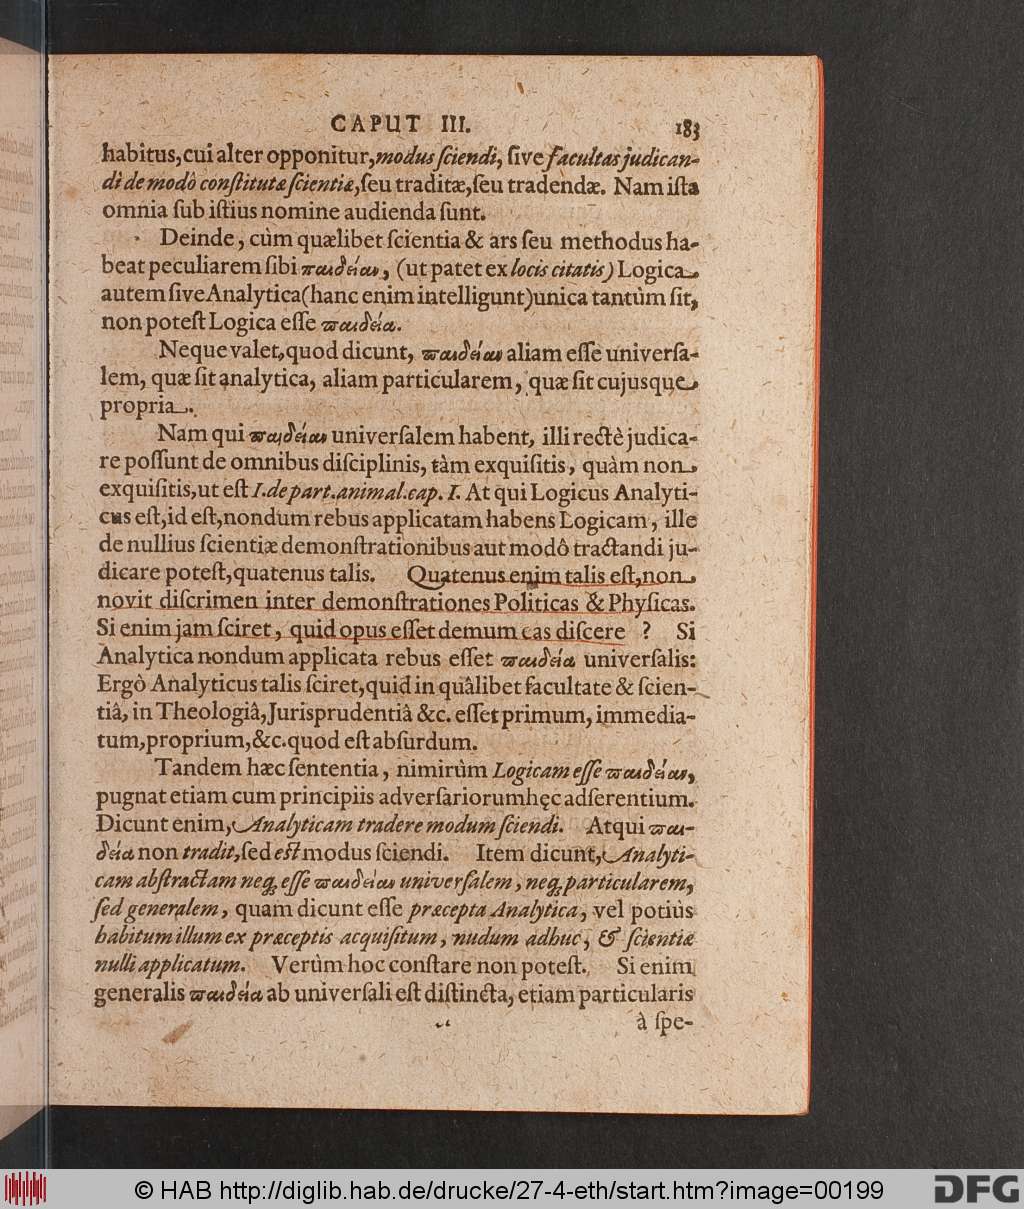 CAPUT III. 183
habitus, cui alter opponitur, modus ſciendi, ſive facultas judican-
di de modô conſtitutæ ſcientiæ, ſeu traditæ, ſeu tradendæ. Nam iſta
omnia ſub iſtius nomine audienda ſunt.
Deinde, cùm quælibet ſcientia & ars ſeu methodus ha-
beat peculiarem ſibi παιδείαν, (ut patet ex locis citatis) Logica
autem ſive Analytica (hanc enim intelligunt) unica tantùm ſit,
non poteſt Logica eſſe παιδεία.
Neque valet, quod dicunt, παιδείαν aliam eſſe univerſa-
lem, quæ ſit analytica, aliam particularem, quæ ſit cujusque
propria.
Nam qui παιδείαν univerſalem habent, illi rectè judica-
re poſſunt de omnibus diſciplinis, tàm exquiſitis, quàm non
exquiſitis, ut eſt I. de part. animal. cap. I. At qui Logicus Analyti-
cus eſt, id eſt, nondum rebus applicatam habens Logicam, ille
de nullius ſcientiæ demonſtrationibus aut modô tractandi ju-
dicare poteſt, quatenus talis. Quatenus enim talis eſt, non
novit diſcrimen inter demonſtrationes Politicas & Phyſicas.
Si enim jam ſciret, quid opus eſſet demum eas diſcere ? Si
Analytica nondum applicata rebus eſſet παιδεία univerſalis:
Ergô Analyticus talis ſciret, quid in quâlibet facultate & ſcien-
tiâ, in Theologiâ, Jurisprudentiâ &c. eſſet primum, immedia-
tum, proprium, &c. quod eſt abſurdum.
Tandem hæc ſententia, nimirùm Logicam eſſe παιδείαν,
pugnat etiam cum principiis adverſariorum hęc adſerentium.
Dicunt enim, Analyticam tradere modum ſciendi. Atqui παι-
δεία non tradit, ſed eſt modus ſciendi. Item dicunt, Analyti-
cam abſtractam neq; eſſe παιδείαν univerſalem, neq; particularem,
ſed generalem, quam dicunt eſſe præcepta Analytica, vel potiùs
habitum illum ex præceptis acquiſitum, nudum adhuc, & ſcientiæ
nulli applicatum. Verùm hoc conſtare non poteſt. Si enim
generalis παιδεία ab univerſali eſt diſtincta, etiam particularis
à ſpe-
© HAB http://diglib.hab.de/drucke/27-4-eth/start.htm?image=00199 DFG